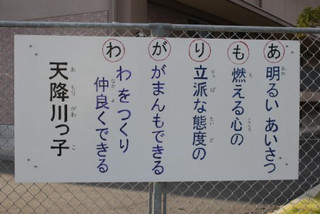 あ 明るい あいさつ
も 燃える心の
り 立派な態度の
が がまんもできる
わ わをつくり
仲良くできる
天降川っ子